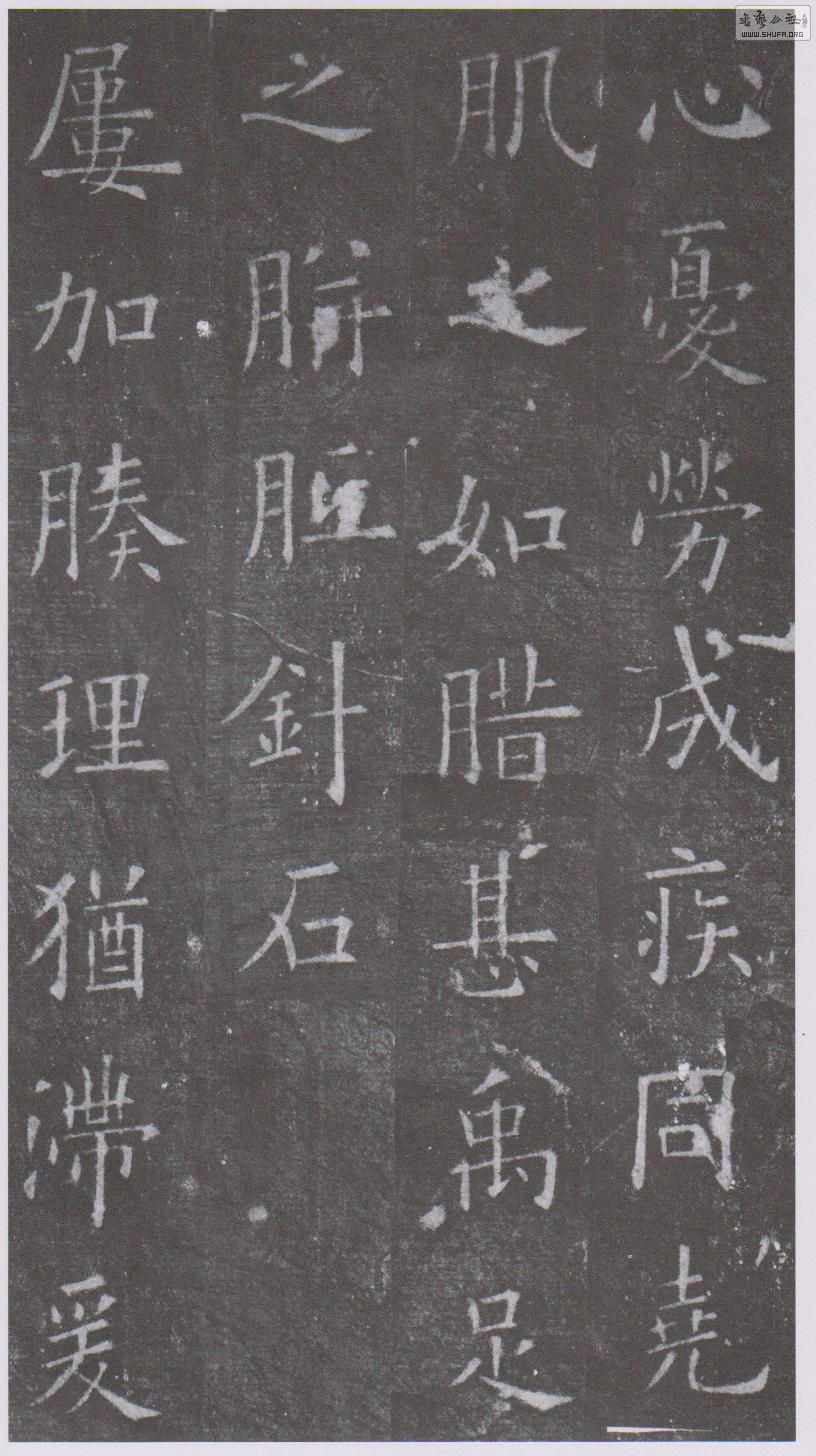 心憂勞成疾同堯
肌之如腊甚禹足
之胼胝針石
屢加腠理猶滯爰
WWW.SHUFA.ORG